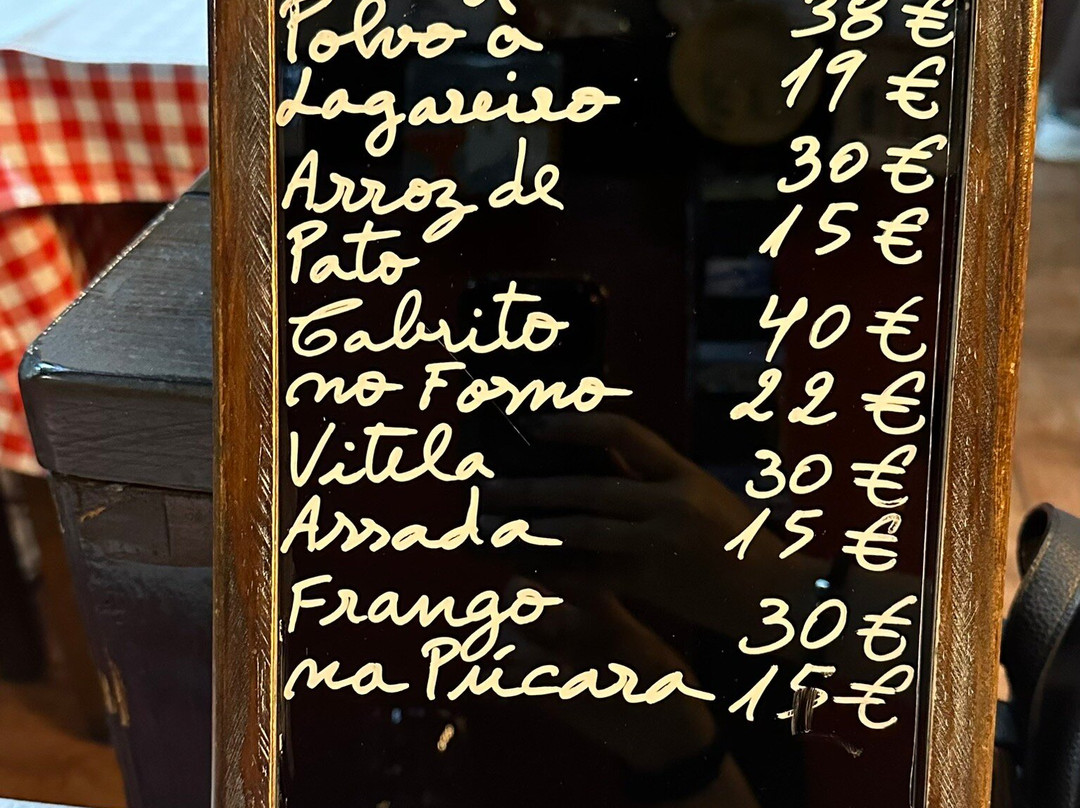 Polvo à 38 €
Lagareiro 19 €
Arroz de 30 €
Pato 15 €
Cabrito 40 €
no Forno 22 €
Vitela 30 €
Assada 15 €
Frango 30 €
na Púcara 15 €